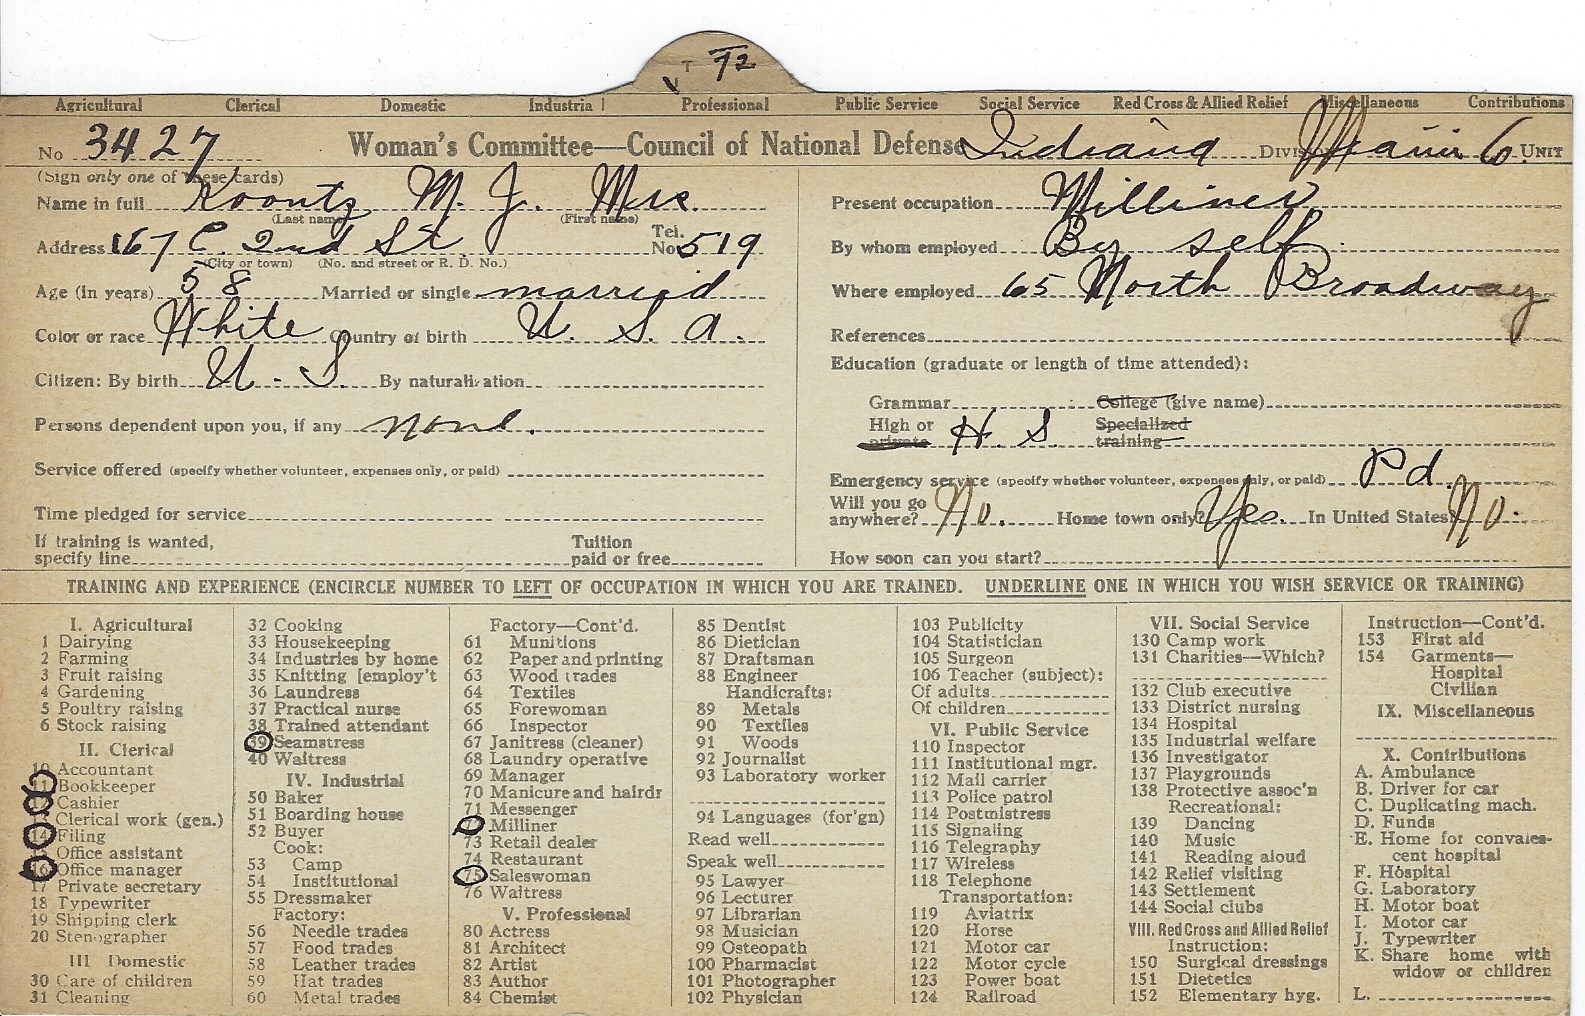 T 72
Agricultural Clerical Domestic Industrial Professional Public Service Social Service Red Cross & Allied Relief Miscellaneous Contributions
No 3427 Woman's Committee—Council of National Defense Indiana Division Miami 6 Unit
(Sign only one of these cards)
Name in full Koontz M. J. Mrs.
(Last name) (First name)
Address 167 E. 2nd St. Tel. No. 519
(City or town) (No. and street or R. D. No.)
Age (in years) 58 Married or single married
Color or race White Country of birth U. S. A.
Citizen: By birth U. S. By naturalization
Persons dependent upon you, if any none.
Service offered (specify whether volunteer, expenses only, or paid)
Time pledged for service
If training is wanted,
specify line Tuition paid or free
Present occupation Milliner
By whom employed By self
Where employed 65 North Broadway
References
Education (graduate or length of time attended):
Grammar College (give name)
High or private H. S. Specialized training
Emergency service (specify whether volunteer, expenses only, or paid) Pd.
Will you go anywhere? No. Home town only? Yes. In United States? No.
How soon can you start?
TRAINING AND EXPERIENCE (ENCIRCLE NUMBER TO LEFT OF OCCUPATION IN WHICH YOU ARE TRAINED. UNDERLINE ONE IN WHICH YOU WISH SERVICE OR TRAINING)
I. Agricultural
1 Dairying
2 Farming
3 Fruit raising
4 Gardening
5 Poultry raising
6 Stock raising
II. Clerical
10 Accountant
11 Bookkeeper
12 Cashier
13 Clerical work (gen.)
14 Filing
15 Office assistant
16 Office manager
17 Private secretary
18 Typewriter
19 Shipping clerk
20 Stenographer
III Domestic
30 Care of children
31 Cleaning
32 Cooking
33 Housekeeping
34 Industries by home
35 Knitting [employ't
36 Laundress
37 Practical nurse
38 Trained attendant
39 Seamstress
40 Waitress
IV. Industrial
50 Baker
51 Boarding house
52 Buyer
Cook:
53 Camp
54 Institutional
55 Dressmaker
Factory:
56 Needle trades
57 Food trades
58 Leather trades
59 Hat trades
60 Metal trades
Factory—Cont'd.
61 Munitions
62 Paper and printing
63 Wood trades
64 Textiles
65 Forewoman
66 Inspector
67 Janitress (cleaner)
68 Laundry operative
69 Manager
70 Manicure and hairdr
71 Messenger
72 Milliner
73 Retail dealer
74 Restaurant
75 Saleswoman
76 Waitress
V. Professional
80 Actress
81 Architect
82 Artist
83 Author
84 Chemist
85 Dentist
86 Dietician
87 Draftsman
88 Engineer
Handicrafts:
89 Metals
90 Textiles
91 Woods
92 Journalist
93 Laboratory worker
94 Languages (for'gn)
Read well
Speak well
95 Lawyer
96 Lecturer
97 Librarian
98 Musician
99 Osteopath
100 Pharmacist
101 Photographer
102 Physician
103 Publicity
104 Statistician
105 Surgeon
106 Teacher (subject):
Of adults
Of children
VI. Public Service
110 Inspector
111 Institutional mgr.
112 Mail carrier
113 Police patrol
114 Postmistress
115 Signaling
116 Telegraphy
117 Wireless
118 Telephone
Transportation:
119 Aviatrix
120 Horse
121 Motor car
122 Motor cycle
123 Power boat
124 Railroad
VII. Social Service
130 Camp work
131 Charities—Which?
132 Club executive
133 District nursing
134 Hospital
135 Industrial welfare
136 Investigator
137 Playgrounds
138 Protective assoc'n
Recreational:
139 Dancing
140 Music
141 Reading aloud
142 Relief visiting
143 Settlement
144 Social clubs
VIII. Red Cross and Allied Relief
Instruction:
150 Surgical dressings
151 Dietetics
152 Elementary hyg.
Instruction—Cont'd.
153 First aid
154 Garments—
Hospital
Civilian
IX. Miscellaneous
X. Contributions
A. Ambulance
B. Driver for car
C. Duplicating mach.
D. Funds
E. Home for convales-
cent hospital
F. Hospital
G. Laboratory
H. Motor boat
I. Motor car
J. Typewriter
K. Share home with
widow or children
L.